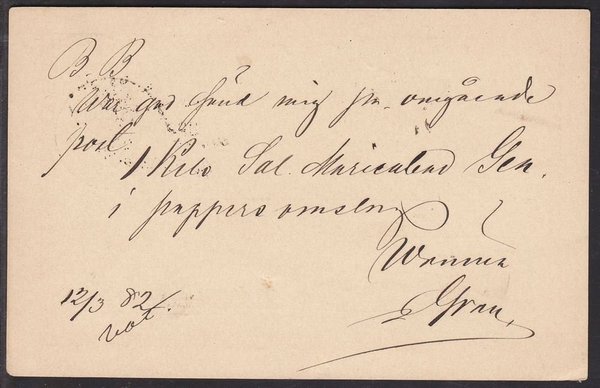 B. B.
War god sänd mig pr. omgående
post
1 Kilo Sal. Marienbad Gen.
i pappersomslag
Wännen
12/3 82.